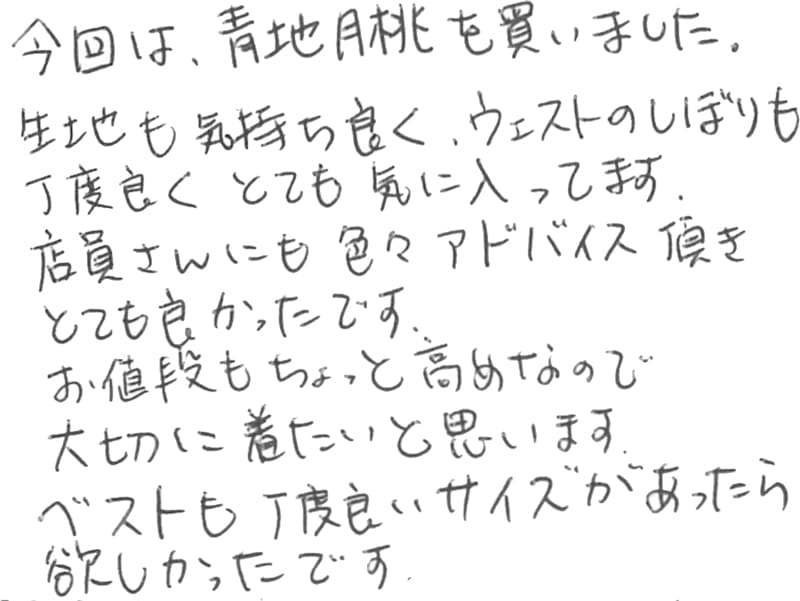 今回は、青地月桃を買いました。
生地も気持ち良く、ウェストのしぼりも
丁度良くとても気に入ってます.
店員さんにも色々アドバイス頂き
とても良かったです.
お値段もちょっと高めなので
大切に着たいと思います.
ベストも丁度良いサイズがあったら
欲しかったです.